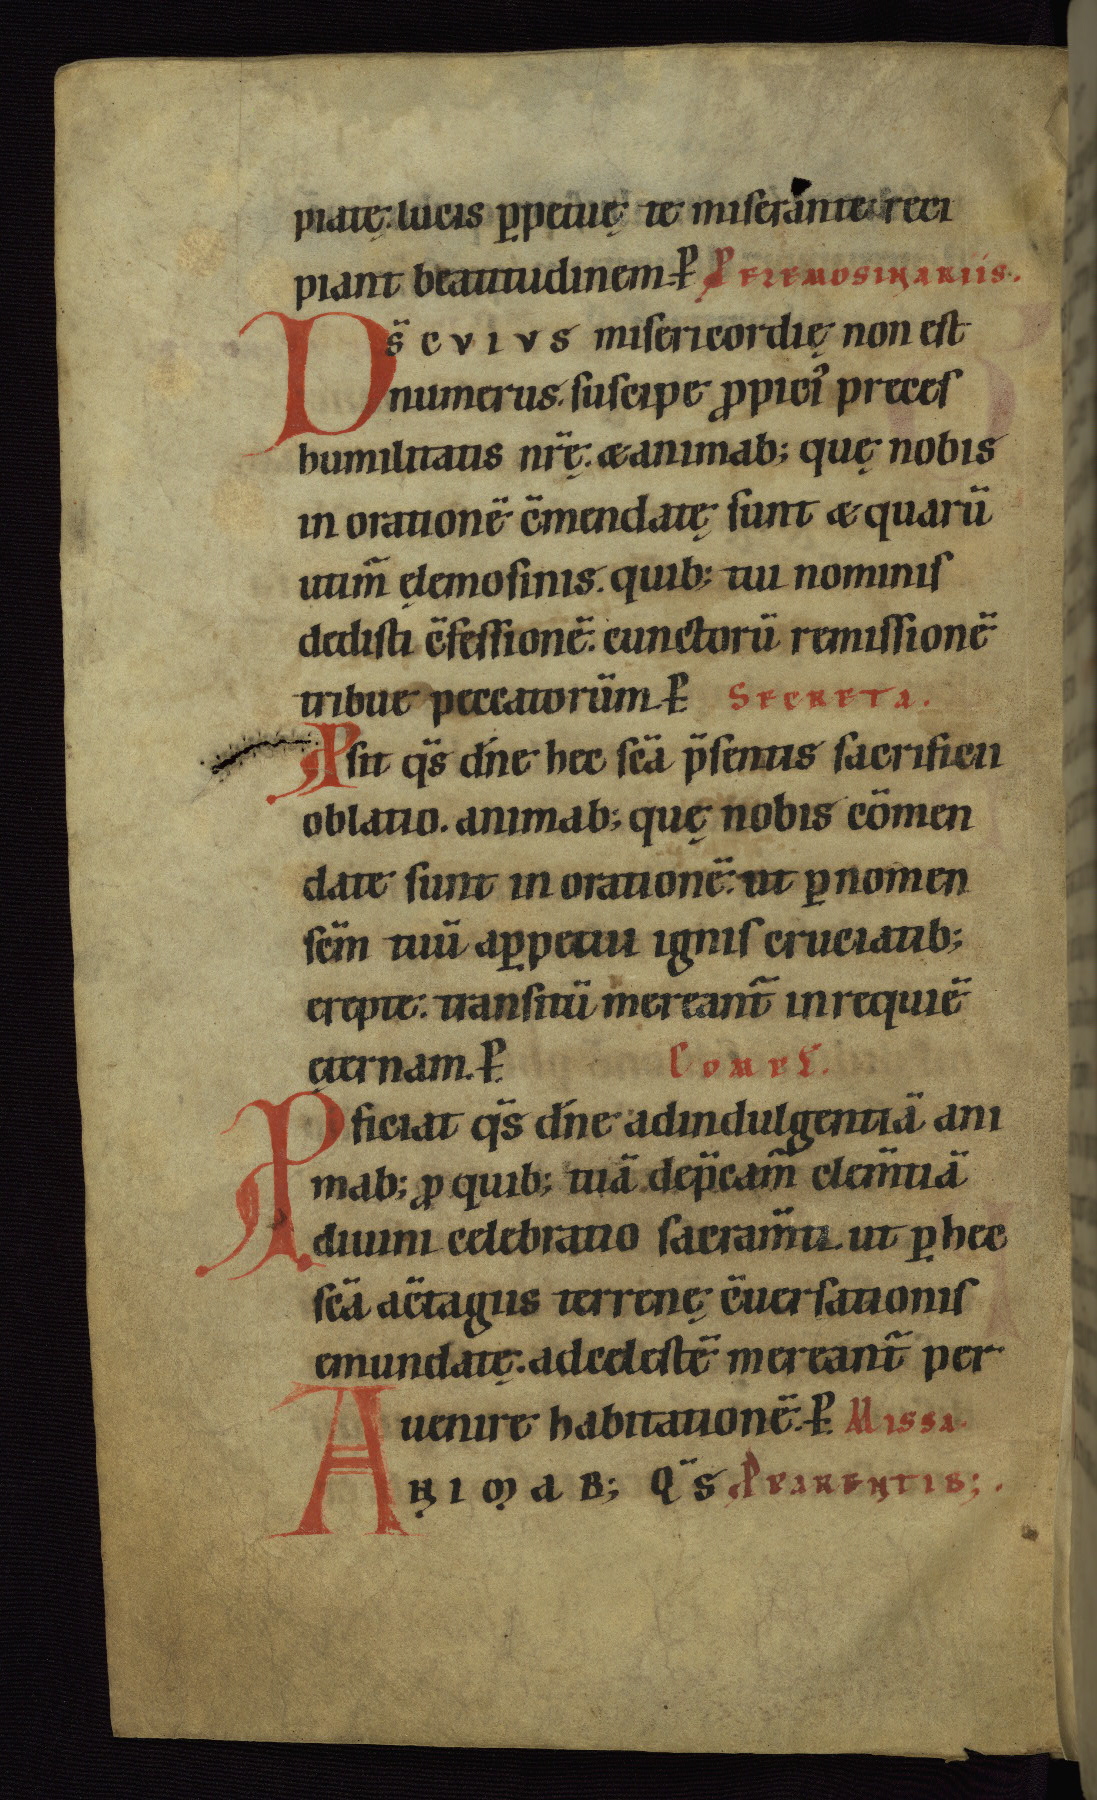 piatę. lucis ꝑpetuę te miserante reci
piant beatitudinem. P̲ P elemosinariis.
Ds̄ CVIVS misericordię non est
numerus. suscipe ꝓpici᾽ preces
humilitatis nr̄ę. & animab; quę nobis
in orationē c̄mendatę sunt & quarū
utim̄ elemosinis. quib; tui nominis
dedisti c̄fessionē. cunctorū remissionē
tribue peccatorūm. P̲ Secreta.
Psit qs̄ dn̄e hec sc̄a p̄sentis sacrificii
oblatio. animab; quę nobis cōmen
date sunt in orationē. ut ꝑ nomen
sc̄m tuū a ꝑpetui ignis cruciatib;
erepte. transitū mereant̄ in requiē
ęternam. P̲ Comƥl.
Pficiat qs̄ dn̄e ad indulgentiā ani
mab; ꝓ quib; tuā dep̄cam̄ clem̄tiā
diuini celebratio sacram̄ti. ut ꝑ hec
sc̄a ac̄tagiis terrenę c̄uersationis
emundatę. ad celestē mereant̄ per
uenire habitationē. P̲ Missa.
ANIMAB; Qs̄ P parentib;.